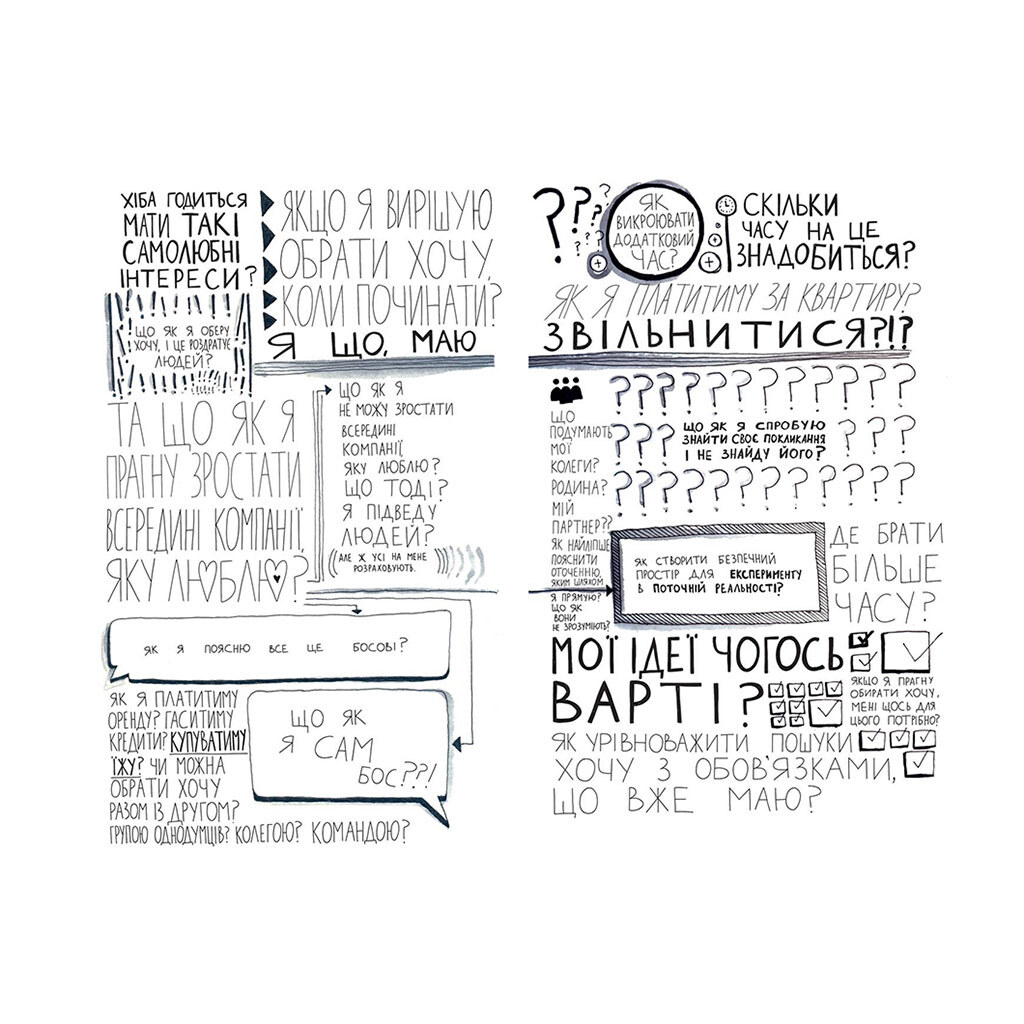 ХІБА ГОДИТЬСЯ
МАТИ ТАКІ
САМОЛЮБНІ
ІНТЕРЕСИ?
ЯКЩО Я ВИРІШУЮ
ОБРАТИ ХОЧУ,
КОЛИ ПОЧИНАТИ?
ЩО ЯК Я ОБЕРУ
ХОЧУ, І ЦЕ РОЗДРАТУЄ
ЛЮДЕЙ?
Я ЩО, МАЮ
ТА ЩО ЯК Я
ПРАГНУ ЗРОСТАТИ
ВСЕРЕДИНІ КОМПАНІЇ,
ЯКУ ЛЮБЛЮ?
ЩО ЯК Я
НЕ МОЖУ ЗРОСТАТИ
ВСЕРЕДИНІ
КОМПАНІЇ,
ЯКУ ЛЮБЛЮ?
ЩО ТОДІ?
Я ПІДВЕДУ
ЛЮДЕЙ?
(АЛЕ Ж УСІ НА МЕНЕ
РОЗРАХОВУЮТЬ.
ЯК Я ПОЯСНЮ ВСЕ ЦЕ БОСОВІ?
ЯК Я ПЛАТИТИМУ
ОРЕНДУ? ГАСИТИМУ
КРЕДИТИ? КУПУВАТИМУ
ЇЖУ? ЧИ МОЖНА
ОБРАТИ ХОЧУ
РАЗОМ ІЗ ДРУГОМ?
ГРУПОЮ ОДНОДУМЦІВ? КОЛЕГОЮ? КОМАНДОЮ?
ЩО ЯК
Я САМ
БОС??!
????????
ЯК
ВИКРОЮВАТИ
ДОДАТКОВИЙ
ЧАС?
СКІЛЬКИ
ЧАСУ НА ЦЕ
ЗНАДОБИТЬСЯ?
ЯК Я ПЛАТИТИМУ ЗА КВАРТИРУ?
ЗВІЛЬНИТИСЯ?!?
?????????????
ЩО
ПОДУМАЮТЬ
МОЇ
КОЛЕГИ?
РОДИНА?
МІЙ
ПАРТНЕР??
ЯК НАЙЛІПШЕ
ПОЯСНИТИ
ОТОЧЕННЮ,
ЯКИМ ШЛЯХОМ
Я ПРЯМУЮ?
ЩО ЯК
ВОНИ
НЕ ЗРОЗУМІЮТЬ?
??? ЩО ЯК Я СПРОБУЮ ???
ЗНАЙТИ СВОЄ ПОКЛИКАННЯ
І НЕ ЗНАЙДУ ЙОГО?
?????????????
ЯК СТВОРИТИ БЕЗПЕЧНИЙ
ПРОСТІР ДЛЯ ЕКСПЕРИМЕНТУ
В ПОТОЧНІЙ РЕАЛЬНОСТІ?
ДЕ БРАТИ
БІЛЬШЕ
ЧАСУ?
МОЇ ІДЕЇ ЧОГОСЬ
ВАРТІ?
ЯКЩО Я ПРАГНУ
ОБИРАТИ ХОЧУ,
МЕНІ ЩОСЬ ДЛЯ
ЦЬОГО ПОТРІБНО?
ЯК УРІВНОВАЖИТИ ПОШУКИ
ХОЧУ З ОБОВ'ЯЗКАМИ,
ЩО ВЖЕ МАЮ?